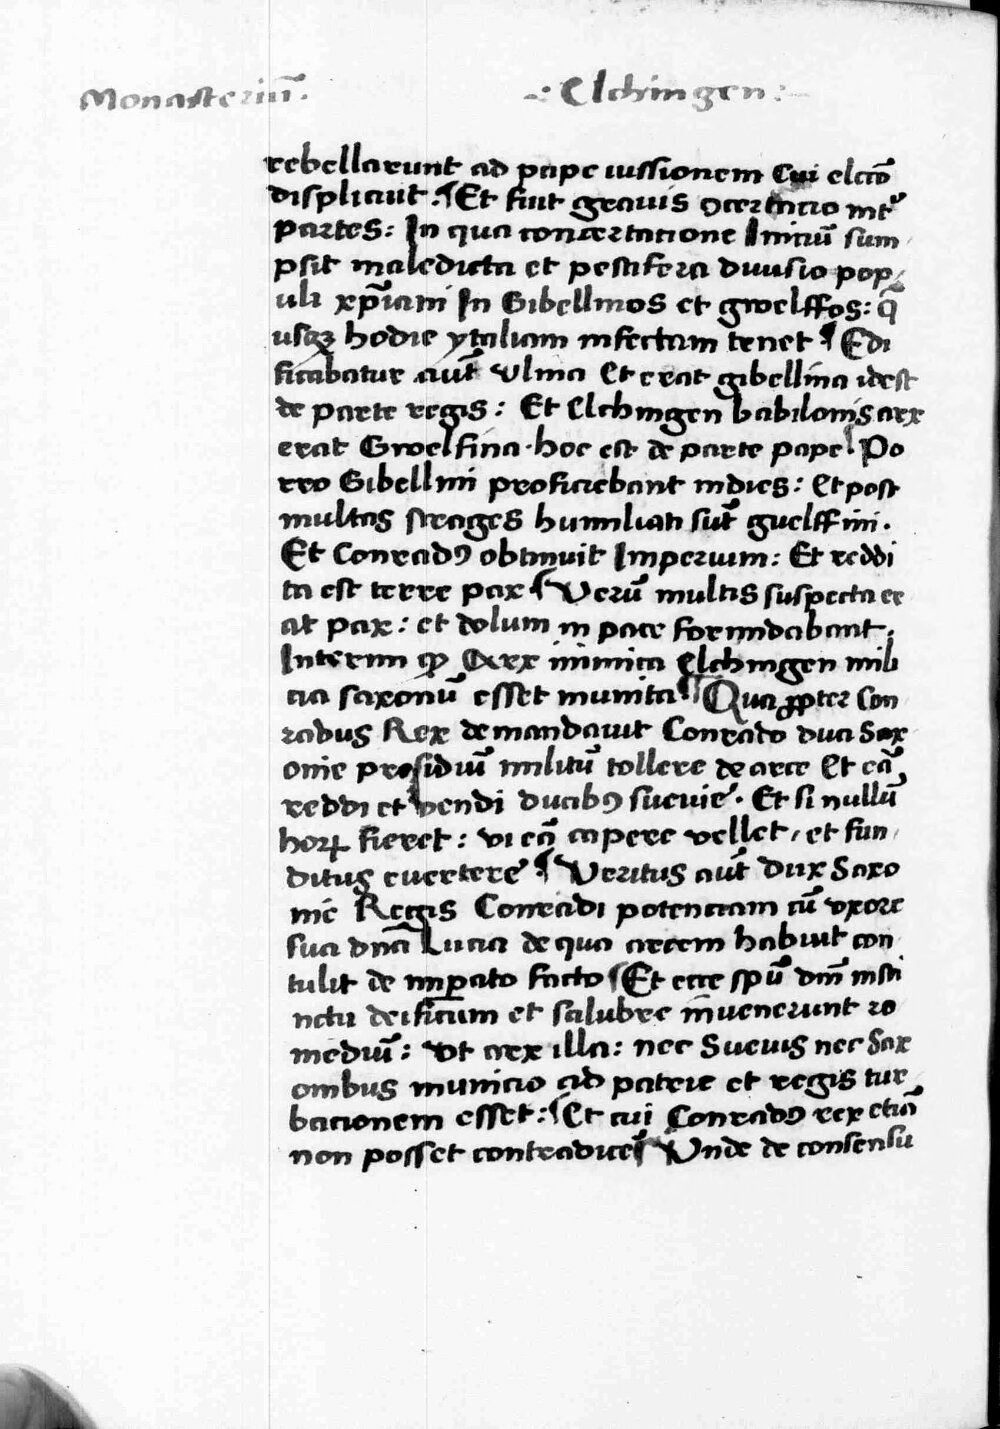 Monasteriū. -: Elchingen :-
rebellarunt ad pape iussionem Cui elctō
displicuit : ¶ Et fuit grauis ꝯcertacio int͛
partes : In qua concertacione Iniciū sum
psit maledicta et pestifera diuisio pop
uli xp̄iani In Gibellinos et gwelffos : q̄
usqꝫ hodie ytaliam infectam tenet ¶ Edi
ficabatur aut̄ Vlma Et erat gibellina idest
de parte regis : Et Elchingen babilonis arx
erat Gwelfina · hoc est de parte pape ¶ Po
rro Gibellini proficiebant indies : Et post
multas strages humiliati sūt guelffini .
Et Conradꝰ obtinuit Imperium : Et reddi
ta est terre pax ¶ Verū multis suspecta er
at pax : et dolum in pace formidabant .
Interim qꝫ Arx inimica Elchingen mili
cia saxonū esset munita ¶ Qua ꝓpter Con
radus Rex demandauit Conrado duci Sax
onie presidiū militū tollere de arce Et eā
reddi et vendi ducibꝰ sueuie . Et si nullū
horꝝ fieret : vi eā capere vellet / et fun
ditus euertere ¶ Veritus aut̄ dux Saxo
nie Regis Conradi potenciam cū vxore
sua dn̄a Lucia de qua arcem habuit con
tulit de imperato facto ¶ Et ecce spū dn̄i insti
nctu deificum et salubre inuenerunt re
mediū : vt arx illa : nec Sueuis nec Sax
onibus municio ad patrie et regis tur
bacionem esset : ¶ Et cui Conradꝰ rex etiā
non posset contradice͛ ¶ Vnde de consensu